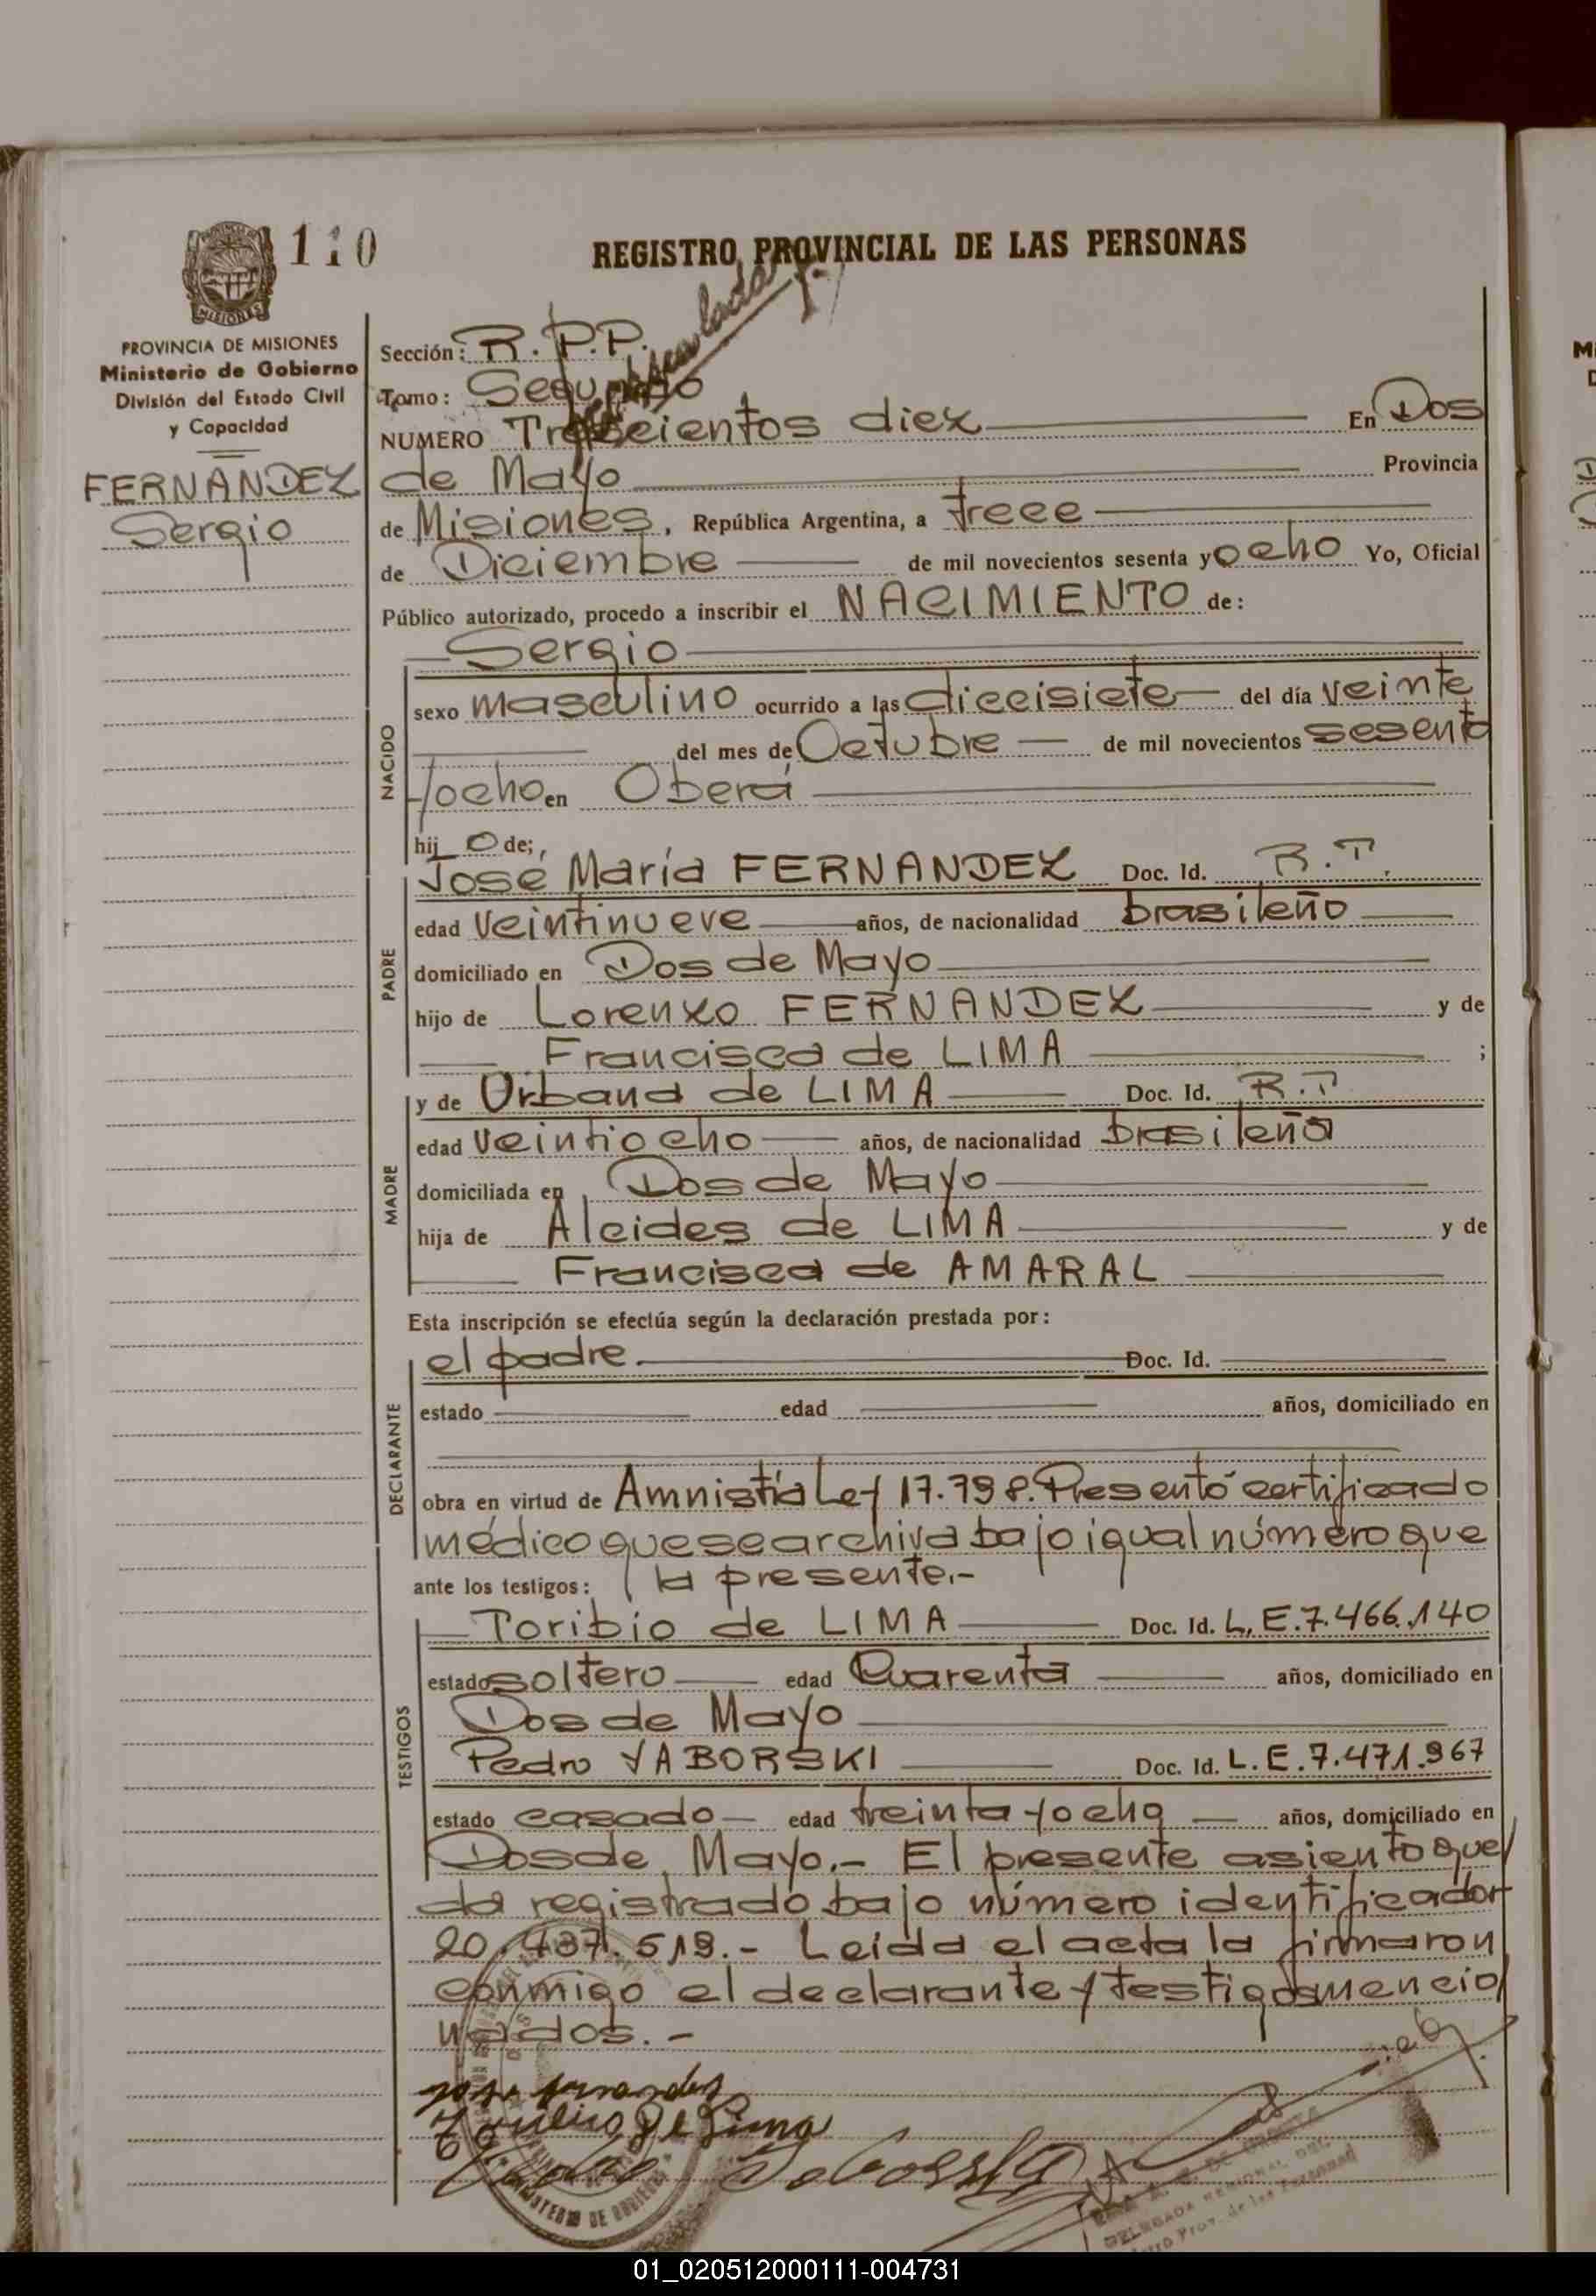 110
REGISTRO PROVINCIAL DE LAS PERSONAS
PROVINCIA DE MISIONES
Ministerio de Gobierno
División del Estado Civil
y Capacidad
FERNANDEZ
Sergio
Sección: R.P.P.
Tomo: Segundo
NUMERO Trescientos diez En Dos
de Mayo Provincia
de Misiones, República Argentina, a trece
de Diciembre de mil novecientos sesenta y ocho Yo, Oficial
Público autorizado, procedo a inscribir el NACIMIENTO de:
Sergio
NACIDO
sexo masculino ocurrido a las diecisiete del día veinte
del mes de Octubre de mil novecientos sesenta
y ocho en Oberá
hijo de;
PADRE
José María FERNANDEZ Doc. Id. R.T.
edad veintinueve años, de nacionalidad brasileño
domiciliado en Dos de Mayo
hijo de Lorenzo FERNANDEZ y de
Francisca de LIMA ;
MADRE
y de Urbana de LIMA Doc. Id. R.T
edad veintiocho años, de nacionalidad brasileña
domiciliada en Dos de Mayo
hija de Alcides de LIMA y de
Francisca de AMARAL
Esta inscripción se efectúa según la declaración prestada por:
DECLARANTE
el padre. Doc. Id.
estado edad años, domiciliado en
obra en virtud de Amnistía Ley 17.798. Presentó certificado
médico que se archiva bajo igual número que
ante los testigos: la presente.-
TESTIGOS
Toribio de LIMA Doc. Id. L.E.7.466.140
estado soltero edad Cuarenta años, domiciliado en
Dos de Mayo
Pedro YABORSKI Doc. Id. L.E.7.471.967
estado casado edad treinta y ocho años, domiciliado en
Dos de Mayo.- El presente asiento que
da registrado bajo número identificador
20.437.519.- Leída el acta la firmaron
conmigo el declarante y testigos mencio
nados.-
de Lima
01_020512000111-004731